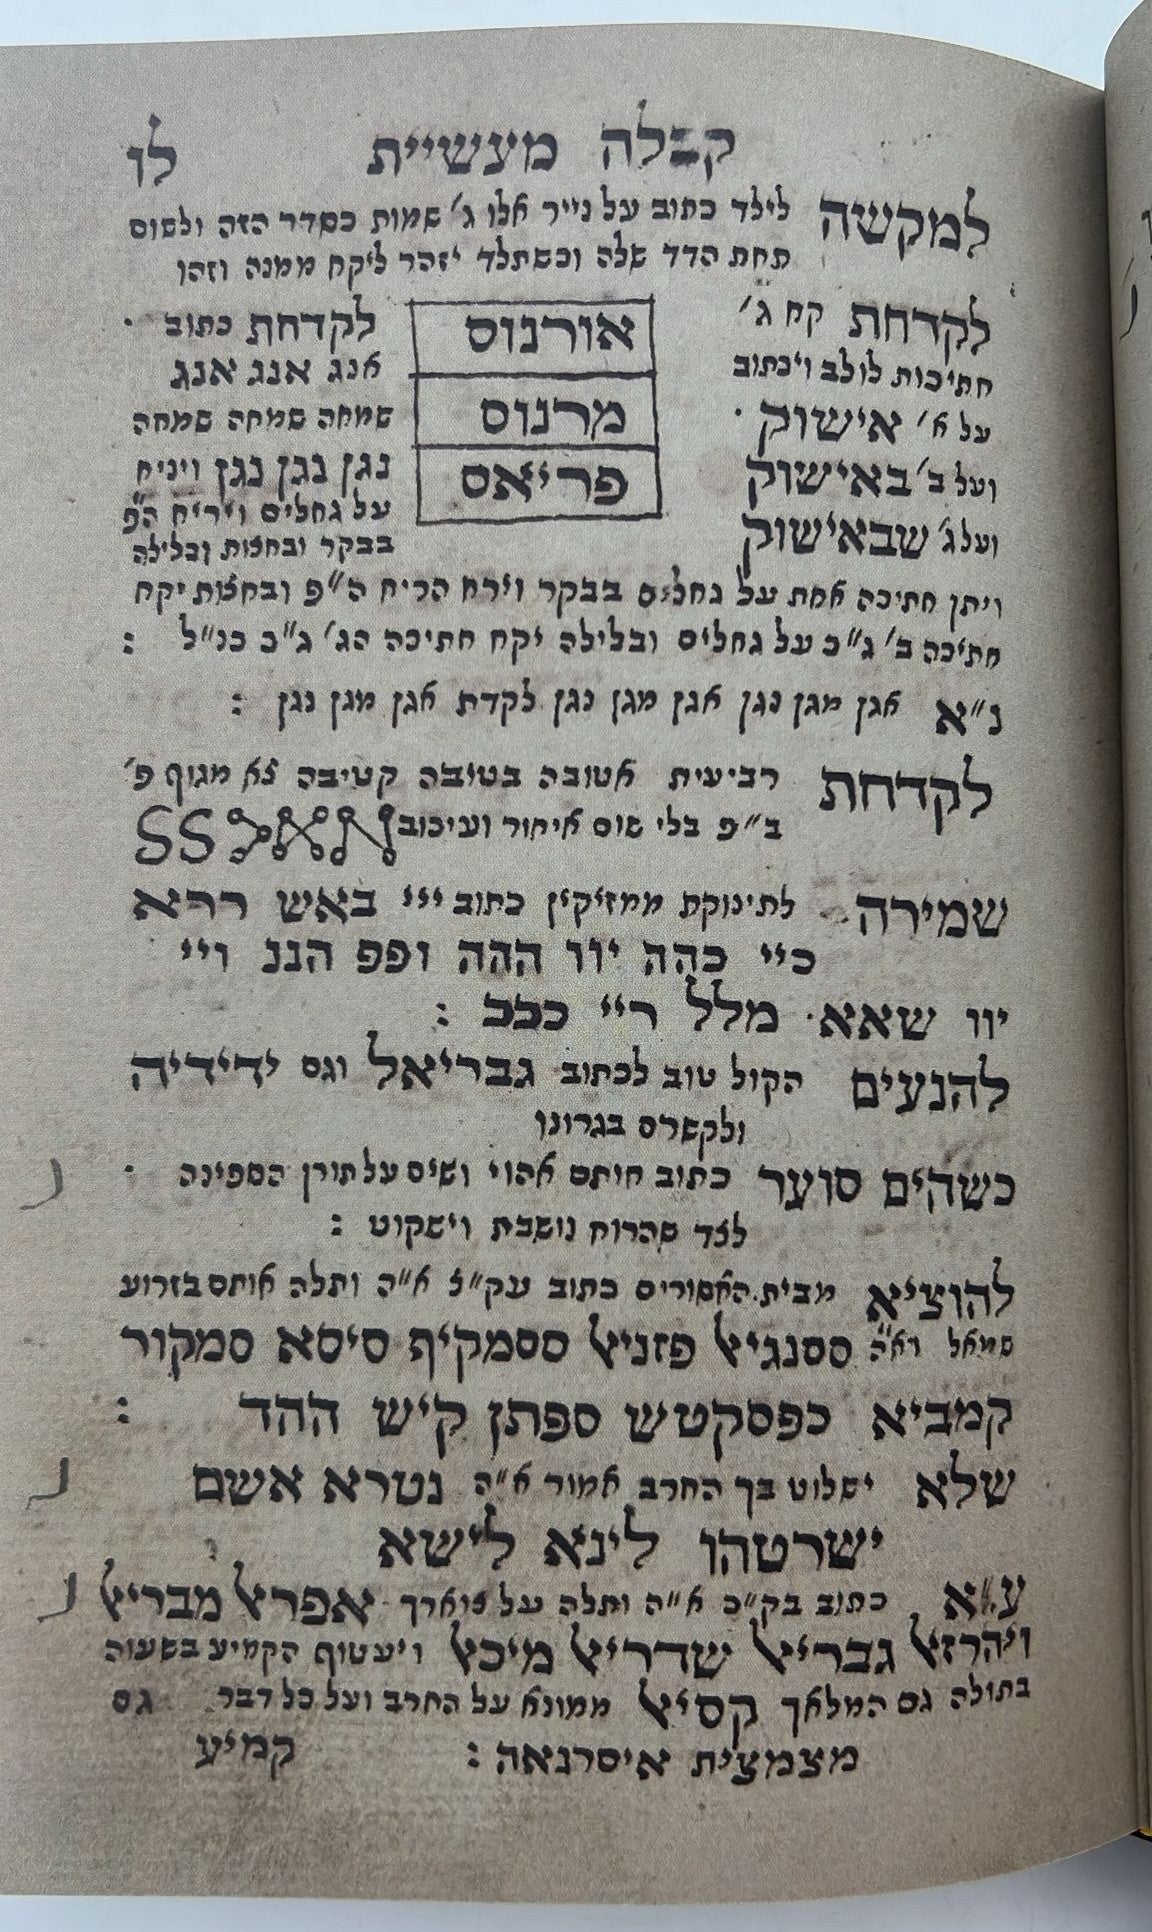 קבלה מעשיית לו
למקשה לילד כתוב על נייר אלו ג' שמות כסדר הזה ולשום
תחת הדד שלה וכשתלד יזהר ליקח ממנה וזהו
לקדחת קח ג'
חתיכות לולב ויכתוב
על א' אישוק
ועל ב' באישוק
ועל ג' שבאישוק
אורנוס
מרנוס
פריאס
לקדחת כתוב
אנג אנג אנג
שמחה שמחה שמחה
נגן נגן נגן ויניח
על גחלים ויריח הפ
בבקר ובחצות ובלילה
ויתן חתיכה אחת על גחלים בבקר וירח הריח ה"פ ובחצות יקח
חתיכה ב' ג"כ על גחלים ובלילה יקח חתיכה הג' ג"כ כנ"ל :
נ"א אגן מגן נגן אגן מגן נגן לקדת אגן מגן נגן :
לקדחת רביעית אטובה בטובה קטיבה צא מגוף פ'
ב"פ בלי שום איחור ועיכוב
שמירה לתינוקת ממזיקין כתוב ייי באש ררא
כיי כהה יוו ההה ופפ הננ ויי
יוו שאא מלל ריי ככב :
להנעים הקול טוב לכתוב גבריאל וגם ידידיה
ולקשרם בגרונו
כשהים סוער כתוב חותם אהוי ושים על תורן הספינה
לצד שהרוח נושבת וישקוט :
להוציא מבית האסורים כתוב עק"צ א"ה ותלה אותם בזרוע
סמאל וא"ה ססנגיאל פזניאל ססמקיף סיסא סמקור
קמביא כפסקטש ספתן קיש ההד :
שלא ישלוט בך החרב אמור א"ה נטרא אשם
ישרטהו לינא לישא
ע"א כתוב בק"כ א"ה ותלה על צוארך אפריאל מבריאל
ויהרזאל גבריאל שדריאל מיכאל ויעטוף הקמיע בשעוה
בתולה גם המלאך קסיאל ממונא על החרב ועל כל דבר גם
מצמצית איסרנאה : קמיע